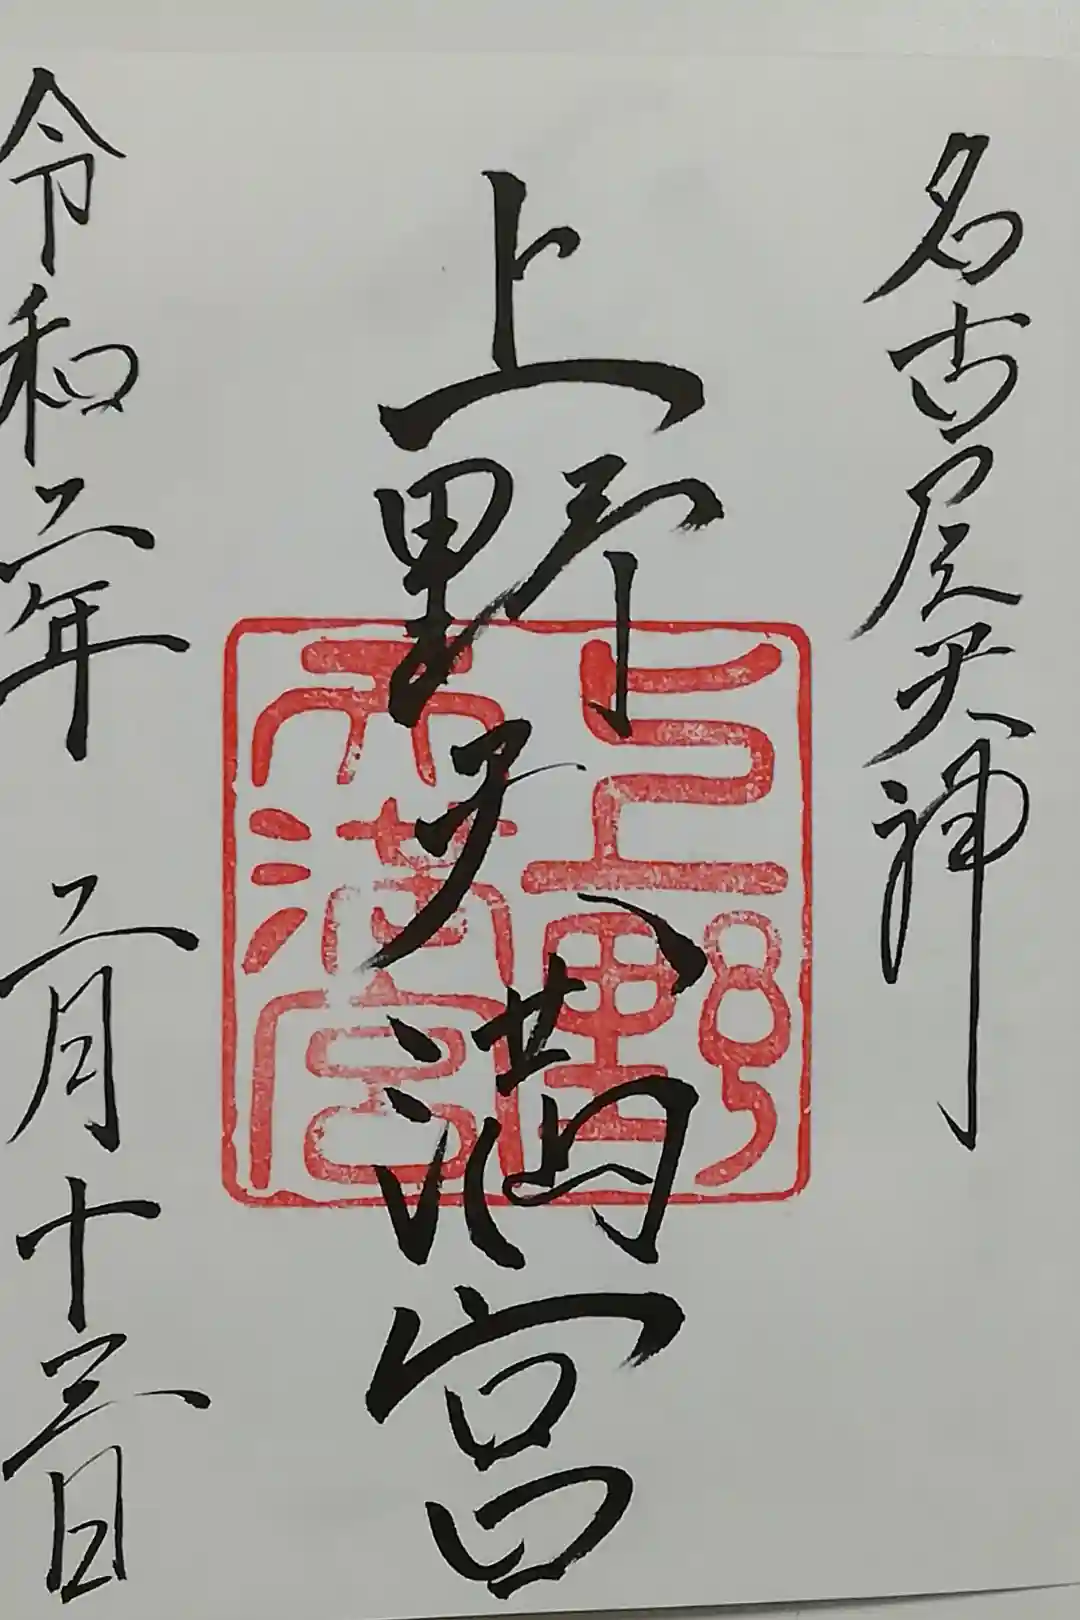 名古屋天神
上野天満宮
上野天満宮
令和二年 二月十三日